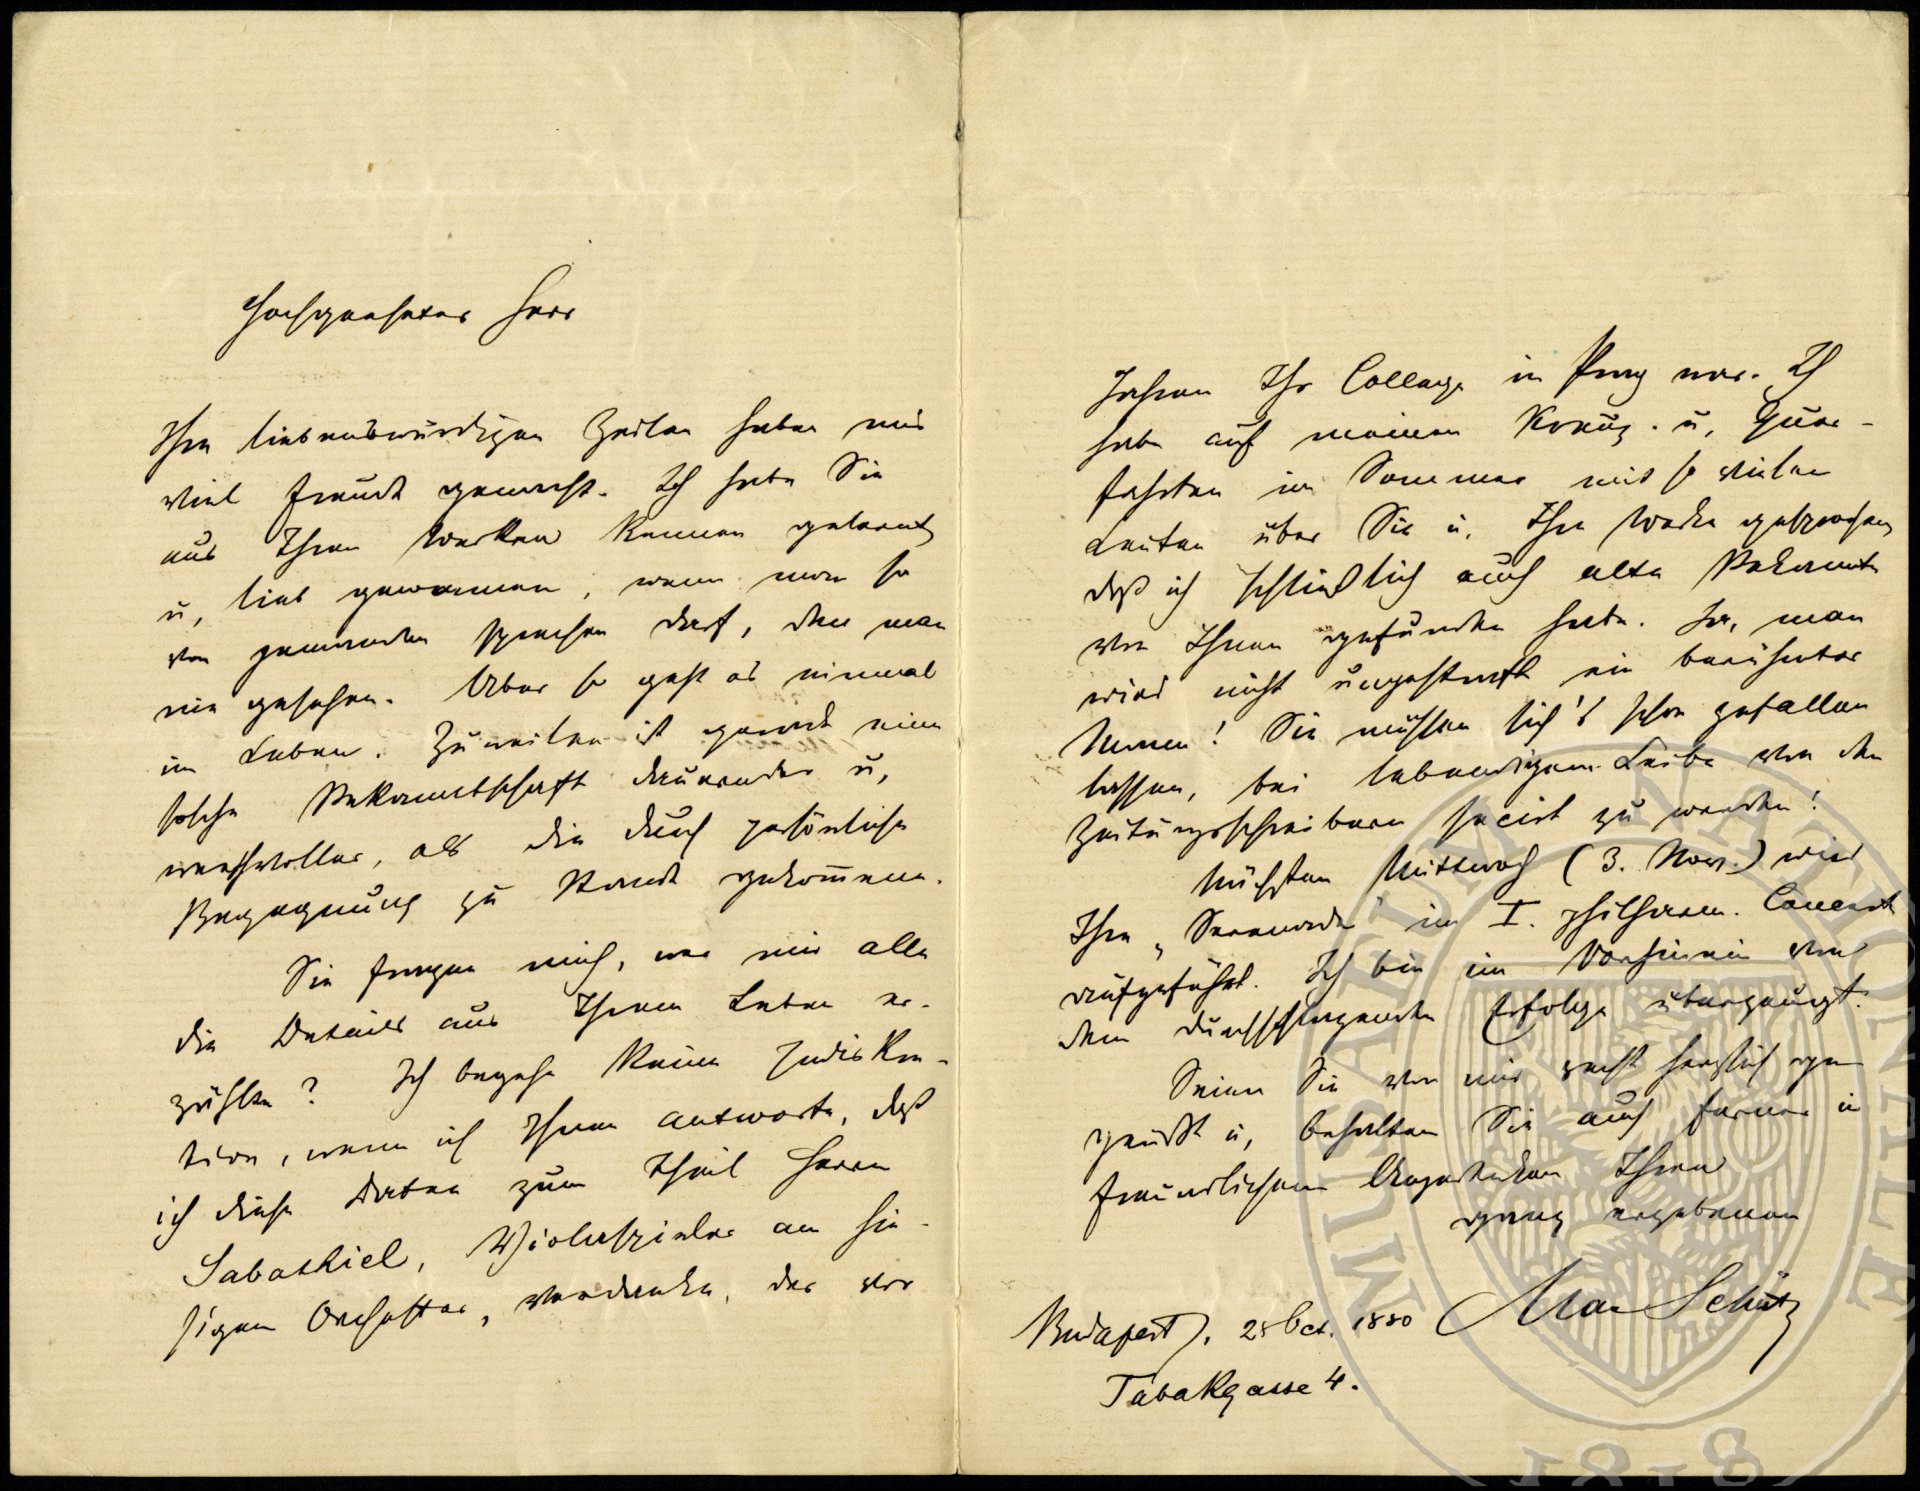 Hochgeehrter Herr
Ihre liebenswürdigen Zeilen haben mir
viel Freude gemacht. Ich habe Sie
aus Ihren Werken kennen gelernt
u, lieb gewonnen, wenn man so
von jemanden sprechen darf, den man
nie gesehen. Aber so geht es einmal
im Leben. Zuweilen ist gerade eine
solche Bekanntschaft dauernder u,
werthvoller, als die durch persönliche
Begegnung zu Stande gekom̄ene.
Sie fragen mich, wer mir alle
die Details aus Ihrem Leben er-
zählte? Ich begehe keine Indiskre-
tion, wenn ich Ihnen antworte, daß
ich diese Daten zum Theil Herrn
Sabathiel, Violaspieler am hie-
sigen Orchester, verdanke, der vor
Jahren Ihr College in Prag war. Ich
habe auf meinen Kreuz- u, Quer-
fahrten im Sommer mit so vielen
Leuten über Sie u, Ihre Werke gesprochen,
daß ich schließlich auch alte Bekannte
von Ihnen gefunden habe. Ja, man
wird nicht ungestraft ein berühmter
Mann! Sie müssen sich's schon gefallen
lassen, bei lebendigem Leibe von den
Zeitungsschreibern secirt zu werden!
Nächsten Mittwoch (3. Nov.) wird
Ihre „Serenade" im I. philharm. Concert
aufgeführt. Ich bin im Vorhinein von
dem durchschlagenden Erfolge überzeugt.
Seien Sie von mir recht herzlich ge-
grüßt u, behalten Sie auch ferner in
freundlichem Angedenken Ihren
ganz ergebenen
Max Schütz
Budapest, 28 Oct. 1880
Tabakgasse 4.
MUSAEUM NATIONALE
1818